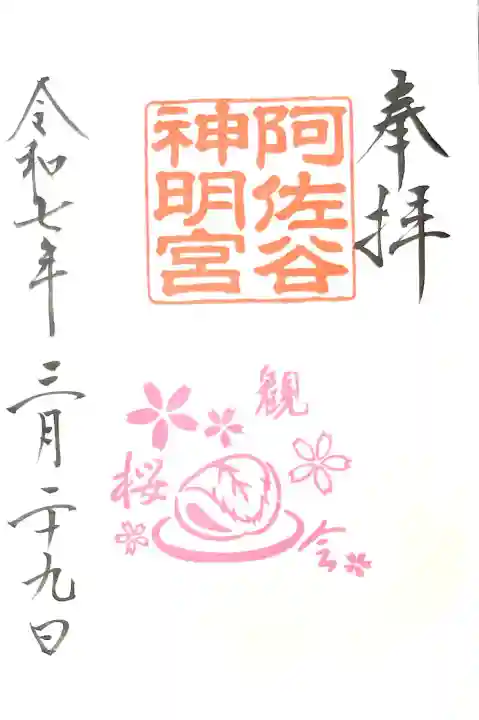 奉拝
阿佐谷
神明宮
観
桜
会
令和七年三月二十九日